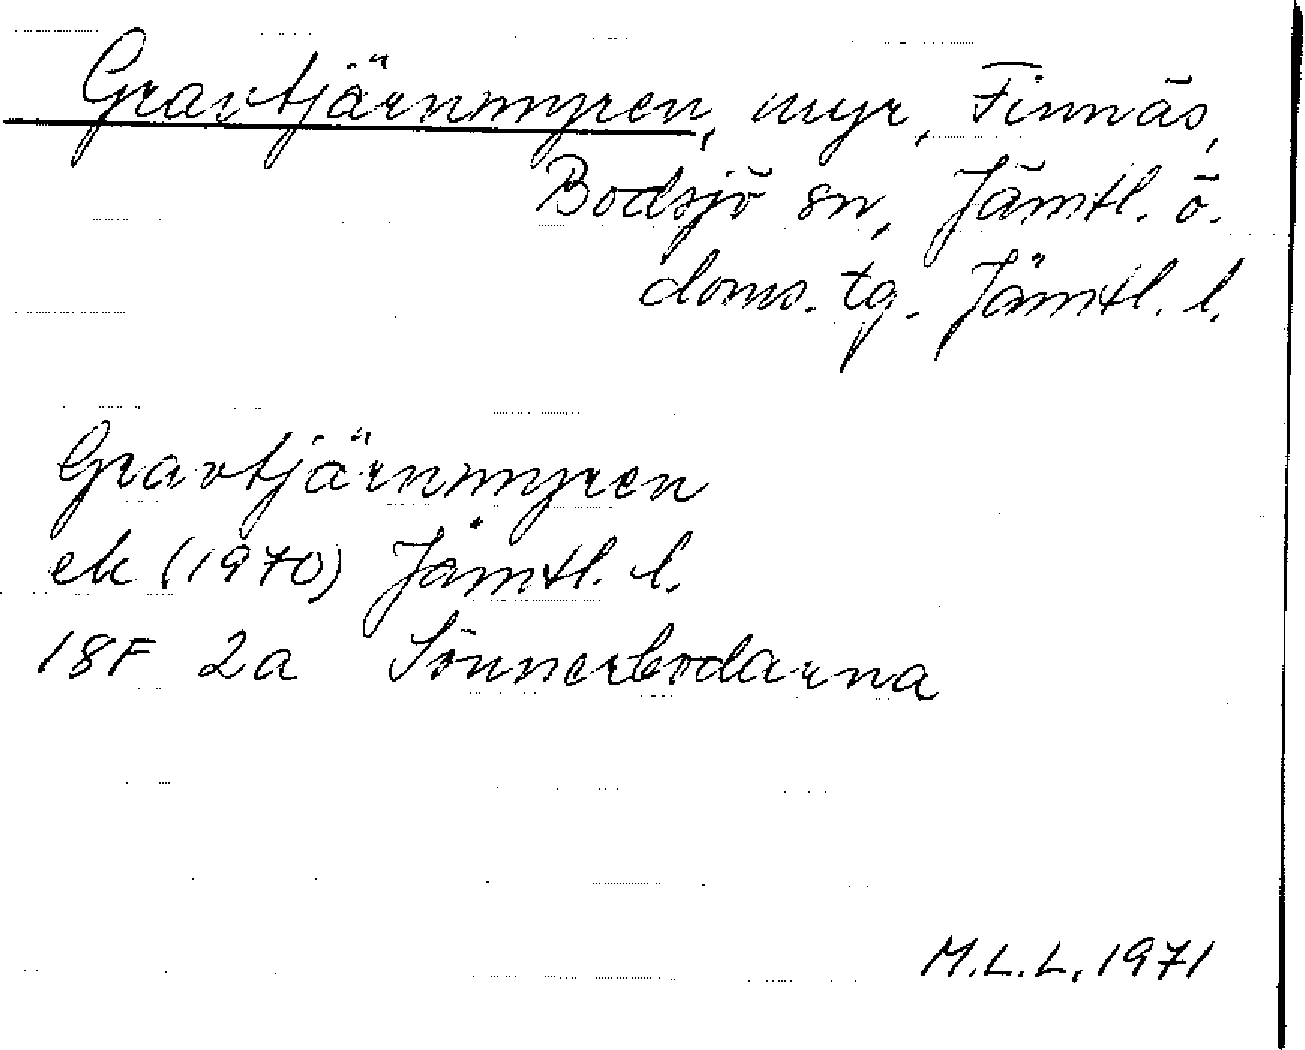 Gravtjärnmyren, myr, Finnäs,
Bodsjö sn, Jämtl. ö.
doms. tg. Jämtl. l.
Gravtjärnmyren
ek (1970) Jämtl. l.
18F 2a Sönnerbodarna
M.L.L. 1971